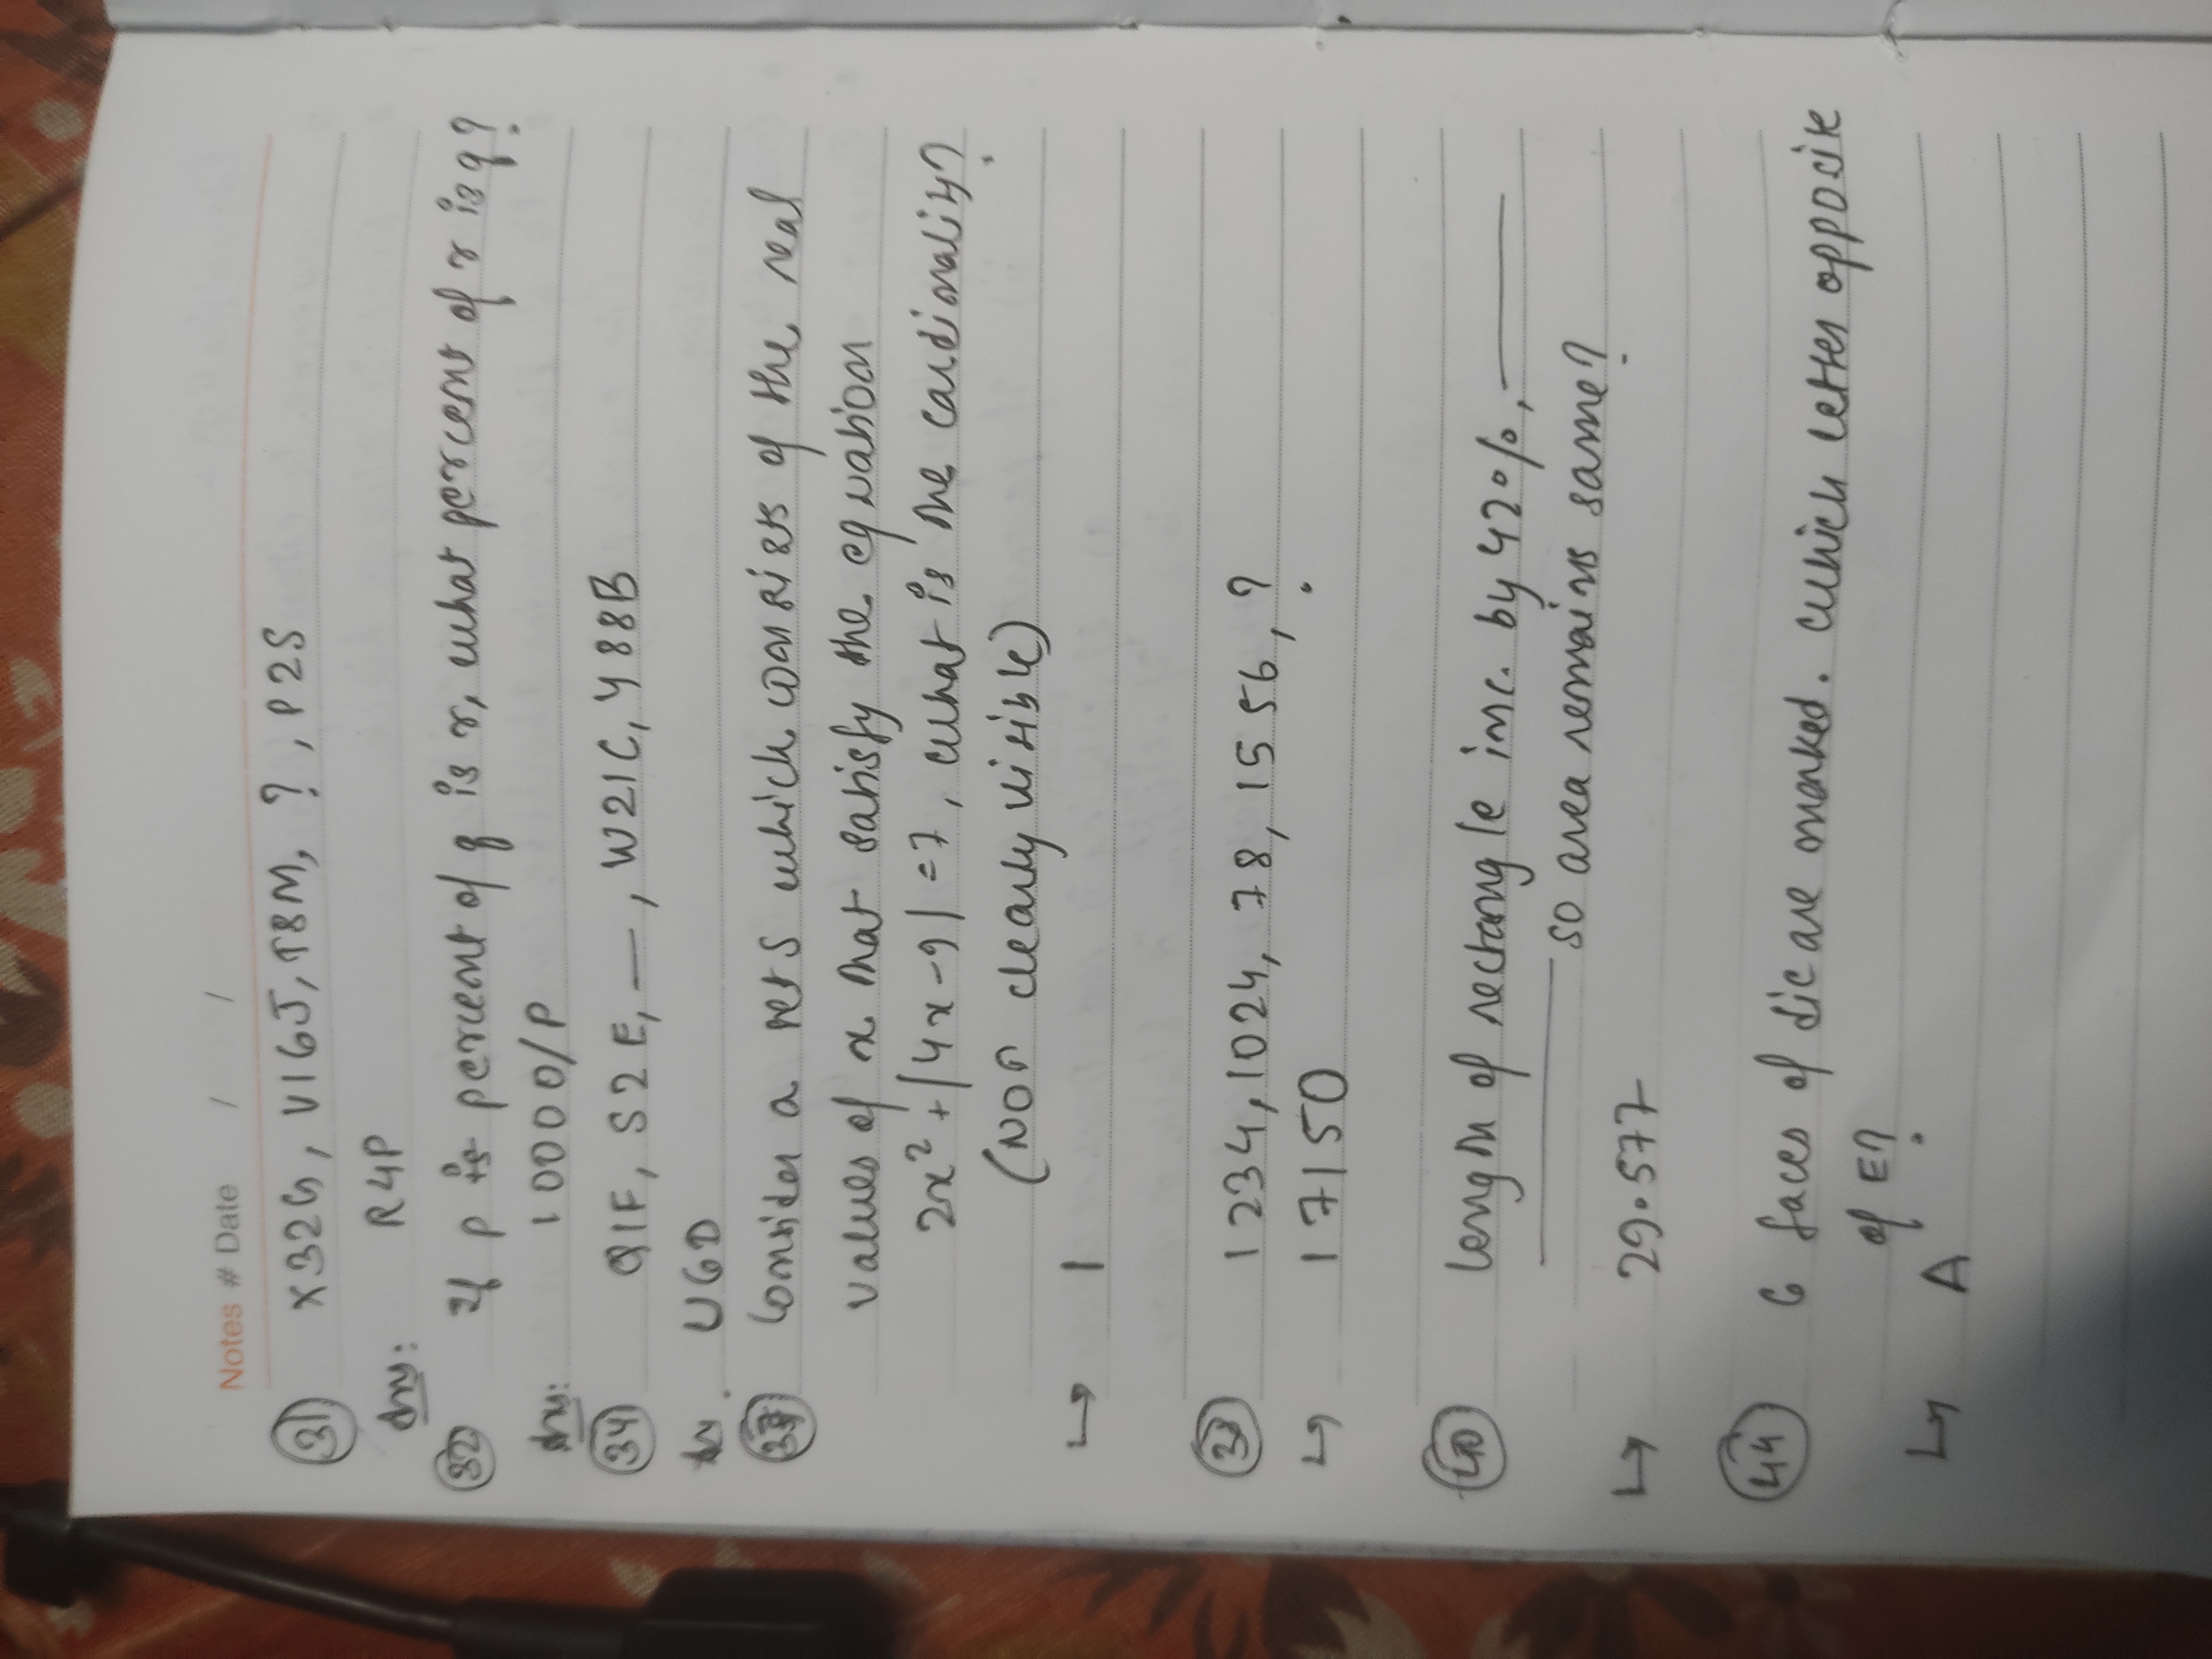 Notes # Date / /
31 X32G, V16J, T8M, ?, P2S
Ans: R4P
32 If p is percent of q is r, what percent of r is q?
Ans: 10000/P
34 Q1F, S2E, —, W21C, Y88B
An. U6D
37 Consider a set S which consists of the real
values of x that satisfy the equation
2x² + |4x-9| = 7, what is the cardinality?
(Not clearly visible)
↳ 1
38 1234, 1024, 78, 1556, ?
↳ 17150
40 length of rectangle inc. by 42%, ———
——— so area remains same?
↳ 29.577
44 6 faces of dic are marked. Which letter opposite
of E?
↳ A